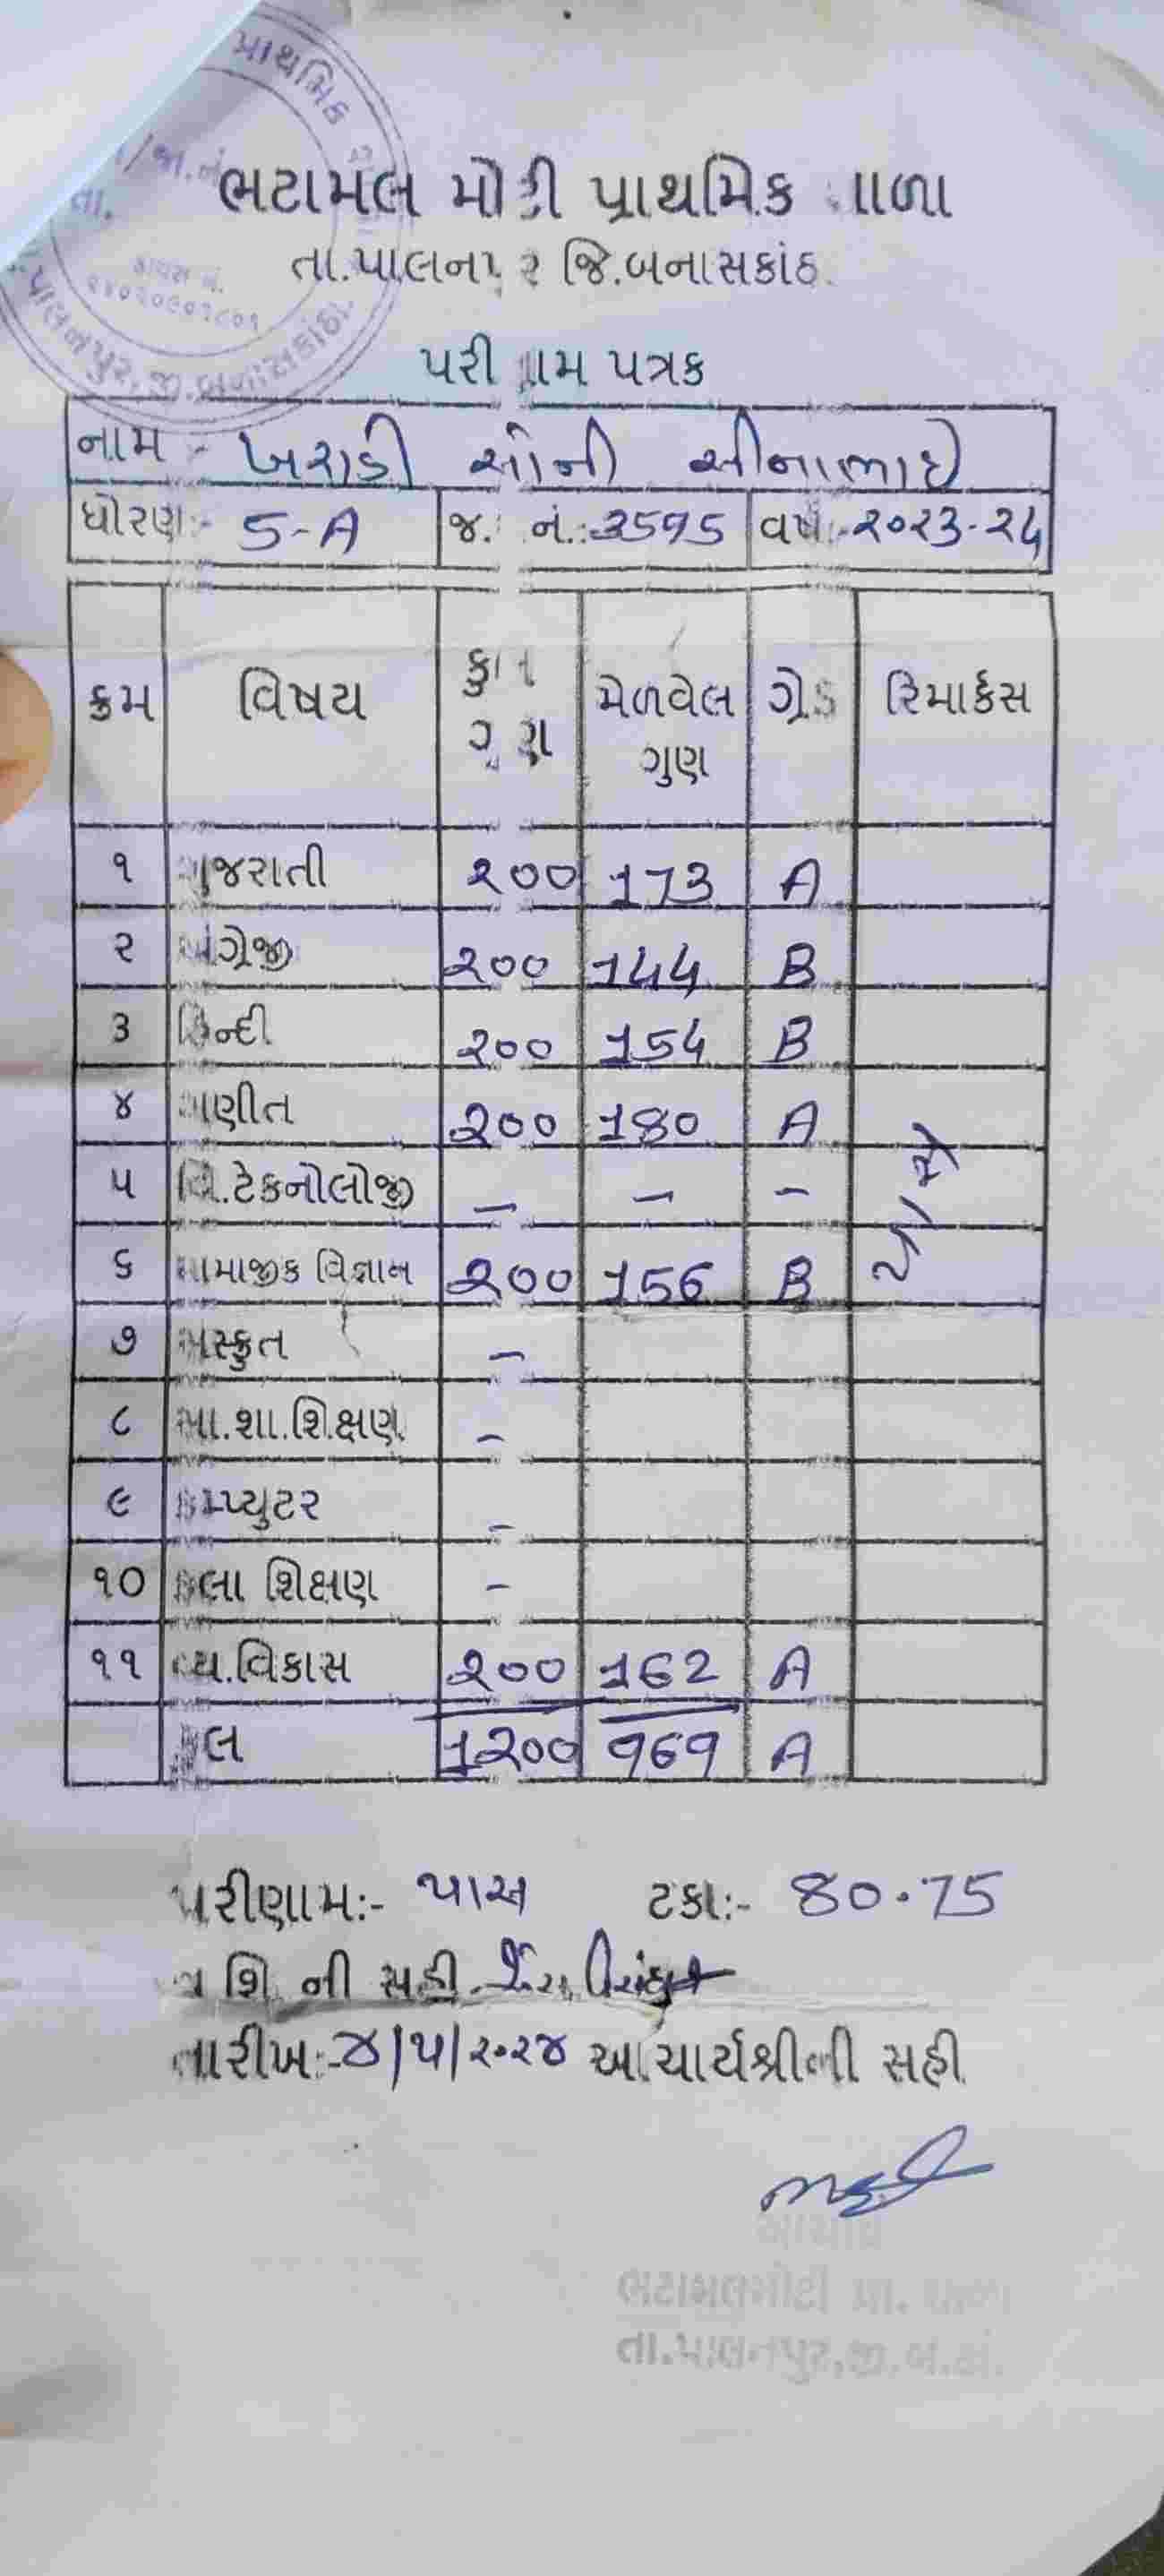 પ્રાથમિક
તા.
પાલનપુર, જી. બનાસકાંઠા
ભટામલ મોટી પ્રાથમિક શાળા
તા.પાલનપુર જિ.બનાસકાંઠા
પરીણામ પત્રક
નામ :- ખરાડી સોની સીનાભાઇ
ધોરણ:- 5-A જ. નં.:- 3595 વર્ષ:-૨૦૨૩-૨૪
ક્રમ વિષય કુલ ગુણ મેળવેલ ગુણ ગ્રેડ રિમાર્કસ
૧ ગુજરાતી ૨૦૦ 173 A
૨ અંગ્રેજી ૨૦૦ 144 B
૩ હિન્દી ૨૦૦ 154 B
૪ ગણીત ૨૦૦ 180 A
૫ વિ.ટેકનોલોજી – – –
૬ સામાજીક વિજ્ઞાન ૨૦૦ 156 B પાસ
૭ સંસ્કૃત –
૮ આ.શા.શિક્ષણ –
૯ કમ્પ્યુટર –
૧૦ કલા શિક્ષણ –
૧૧ વ્ય.વિકાસ ૨૦૦ 162 A
કુલ 1૨૦૦ 969 A
પરીણામ:- પાસ ટકા:- 80.75
વ શિ ની સહી
તારીખ:-૪/૫/૨૦૨૪ આચાર્યશ્રીની સહી
આચાર્ય
ભટામલમોટી પ્રા. શાળા
તા.પાલનપુર,જી.બ.કાં.